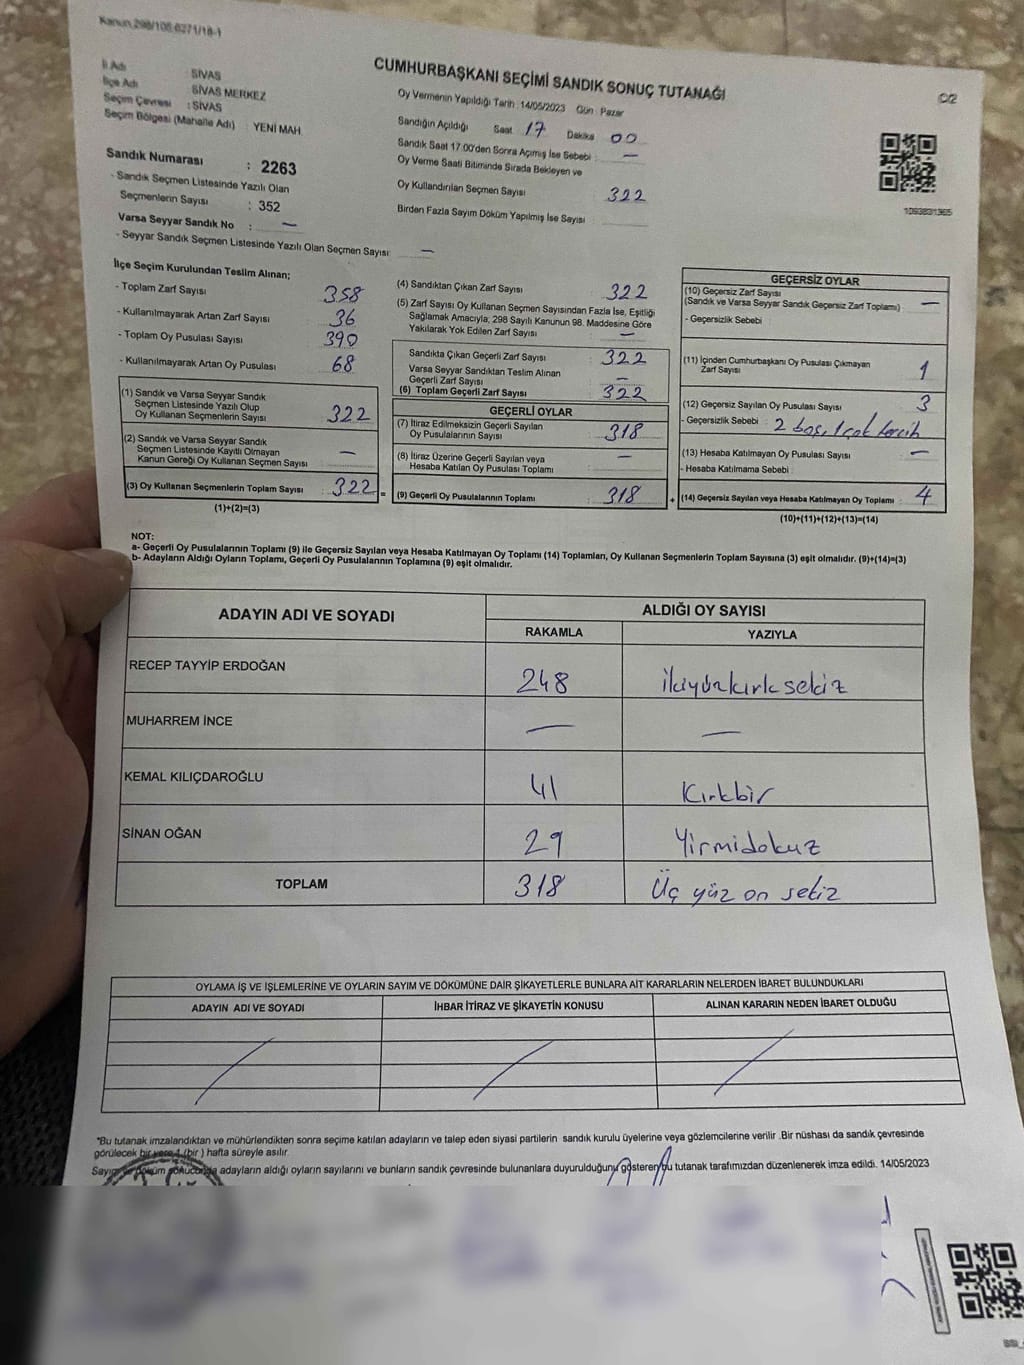 Kanun 298/105 6271/18-1
CUMHURBAŞKANI SEÇİMİ SANDIK SONUÇ TUTANAĞI
C/2
İl Adı : SİVAS
İlçe Adı : SİVAS MERKEZ
Seçim Çevresi : SİVAS
Seçim Bölgesi (Mahalle Adı) : YENİ MAH
Sandık Numarası : 2263
- Sandık Seçmen Listesinde Yazılı Olan
Seçmenlerin Sayısı : 352
Varsa Seyyar Sandık No : —
- Seyyar Sandık Seçmen Listesinde Yazılı Olan Seçmen Sayısı : —
Oy Vermenin Yapıldığı Tarih : 14/05/2023 Gün : Pazar
Sandığın Açıldığı Saat 17 Dakika 00
Sandık Saat 17:00'den Sonra Açımış İse Sebebi : —
Oy Verme Saati Bitiminde Sırada Bekleyen ve
Oy Kullandırılan Seçmen Sayısı 322
Birden Fazla Sayım Döküm Yapılmış İse Sayısı
1093831365
İlçe Seçim Kurulundan Teslim Alınan;
- Toplam Zarf Sayısı 358
- Kullanılmayarak Artan Zarf Sayısı 36
- Toplam Oy Pusulası Sayısı 390
- Kullanılmayarak Artan Oy Pusulası 68
(1) Sandık ve Varsa Seyyar Sandık
Seçmen Listesinde Yazılı Olup
Oy Kullanan Seçmenlerin Sayısı : 322
(2) Sandık ve Varsa Seyyar Sandık
Seçmen Listesinde Kayıtlı Olmayan
Kanun Gereği Oy Kullanan Seçmen Sayısı : —
(3) Oy Kullanan Seçmenlerin Toplam Sayısı : 322 =
(1)+(2)=(3)
(4) Sandıktan Çıkan Zarf Sayısı : 322
(5) Zarf Sayısı Oy Kullanan Seçmen Sayısından Fazla İse, Eşitliği
Sağlamak Amacıyla, 298 Sayılı Kanunun 98. Maddesine Göre
Yakılarak Yok Edilen Zarf Sayısı : —
Sandıkta Çıkan Geçerli Zarf Sayısı : 322
Varsa Seyyar Sandıktan Teslim Alınan
Geçerli Zarf Sayısı : —
(6) Toplam Geçerli Zarf Sayısı : 322
GEÇERLİ OYLAR
(7) İtiraz Edilmeksizin Geçerli Sayılan
Oy Pusulalarının Sayısı : 318
(8) İtiraz Üzerine Geçerli Sayılan veya
Hesaba Katılan Oy Pusulası Toplamı : —
(9) Geçerli Oy Pusulalarının Toplamı : 318 +
GEÇERSİZ OYLAR
(10) Geçersiz Zarf Sayısı
(Sandık ve Varsa Seyyar Sandık Geçersiz Zarf Toplamı) : —
- Geçersizlik Sebebi
(11) İçinden Cumhurbaşkanı Oy Pusulası Çıkmayan
Zarf Sayısı : 1
(12) Geçersiz Sayılan Oy Pusulası Sayısı : 3
- Geçersizlik Sebebi : 2 boş, 1 çok tercih
(13) Hesaba Katılmayan Oy Pusulası Sayısı : —
- Hesaba Katılmama Sebebi :
(14) Geçersiz Sayılan veya Hesaba Katılmayan Oy Toplamı : 4
(10)+(11)+(12)+(13)=(14)
NOT:
a- Geçerli Oy Pusulalarının Toplamı (9) ile Geçersiz Sayılan veya Hesaba Katılmayan Oy Toplamı (14) Toplamları, Oy Kullanan Seçmenlerin Toplam Sayısına (3) eşit olmalıdır. (9)+(14)=(3)
b- Adayların Aldığı Oyların Toplamı, Geçerli Oy Pusulalarının Toplamına (9) eşit olmalıdır.
ADAYIN ADI VE SOYADI ALDIĞI OY SAYISI
RAKAMLA YAZIYLA
RECEP TAYYİP ERDOĞAN 248 ikiyüzkırksekiz
MUHARREM İNCE — —
KEMAL KILIÇDAROĞLU 41 Kırkbir
SİNAN OĞAN 29 Yirmidokuz
TOPLAM 318 Üç yüz on sekiz
OYLAMA İŞ VE İŞLEMLERİNE VE OYLARIN SAYIM VE DÖKÜMÜNE DAİR ŞİKAYETLERLE BUNLARA AİT KARARLARIN NELERDEN İBARET BULUNDUKLARI
ADAYIN ADI VE SOYADI İHBAR İTİRAZ VE ŞİKAYETİN KONUSU ALINAN KARARIN NEDEN İBARET OLDUĞU
*Bu tutanak imzalandıktan ve mühürlendikten sonra seçime katılan adayların ve talep eden siyasi partilerin sandık kurulu üyelerine veya gözlemcilerine verilir .Bir nüshası da sandık çevresinde
görülecek bir yere 1 (bir ) hafta süreyle asılır.
Sayım ve döküm sonucunda adayların aldığı oyların sayılarını ve bunların sandık çevresinde bulunanlara duyurulduğunu gösteren bu tutanak tarafımızdan düzenlenerek imza edildi. 14/05/2023